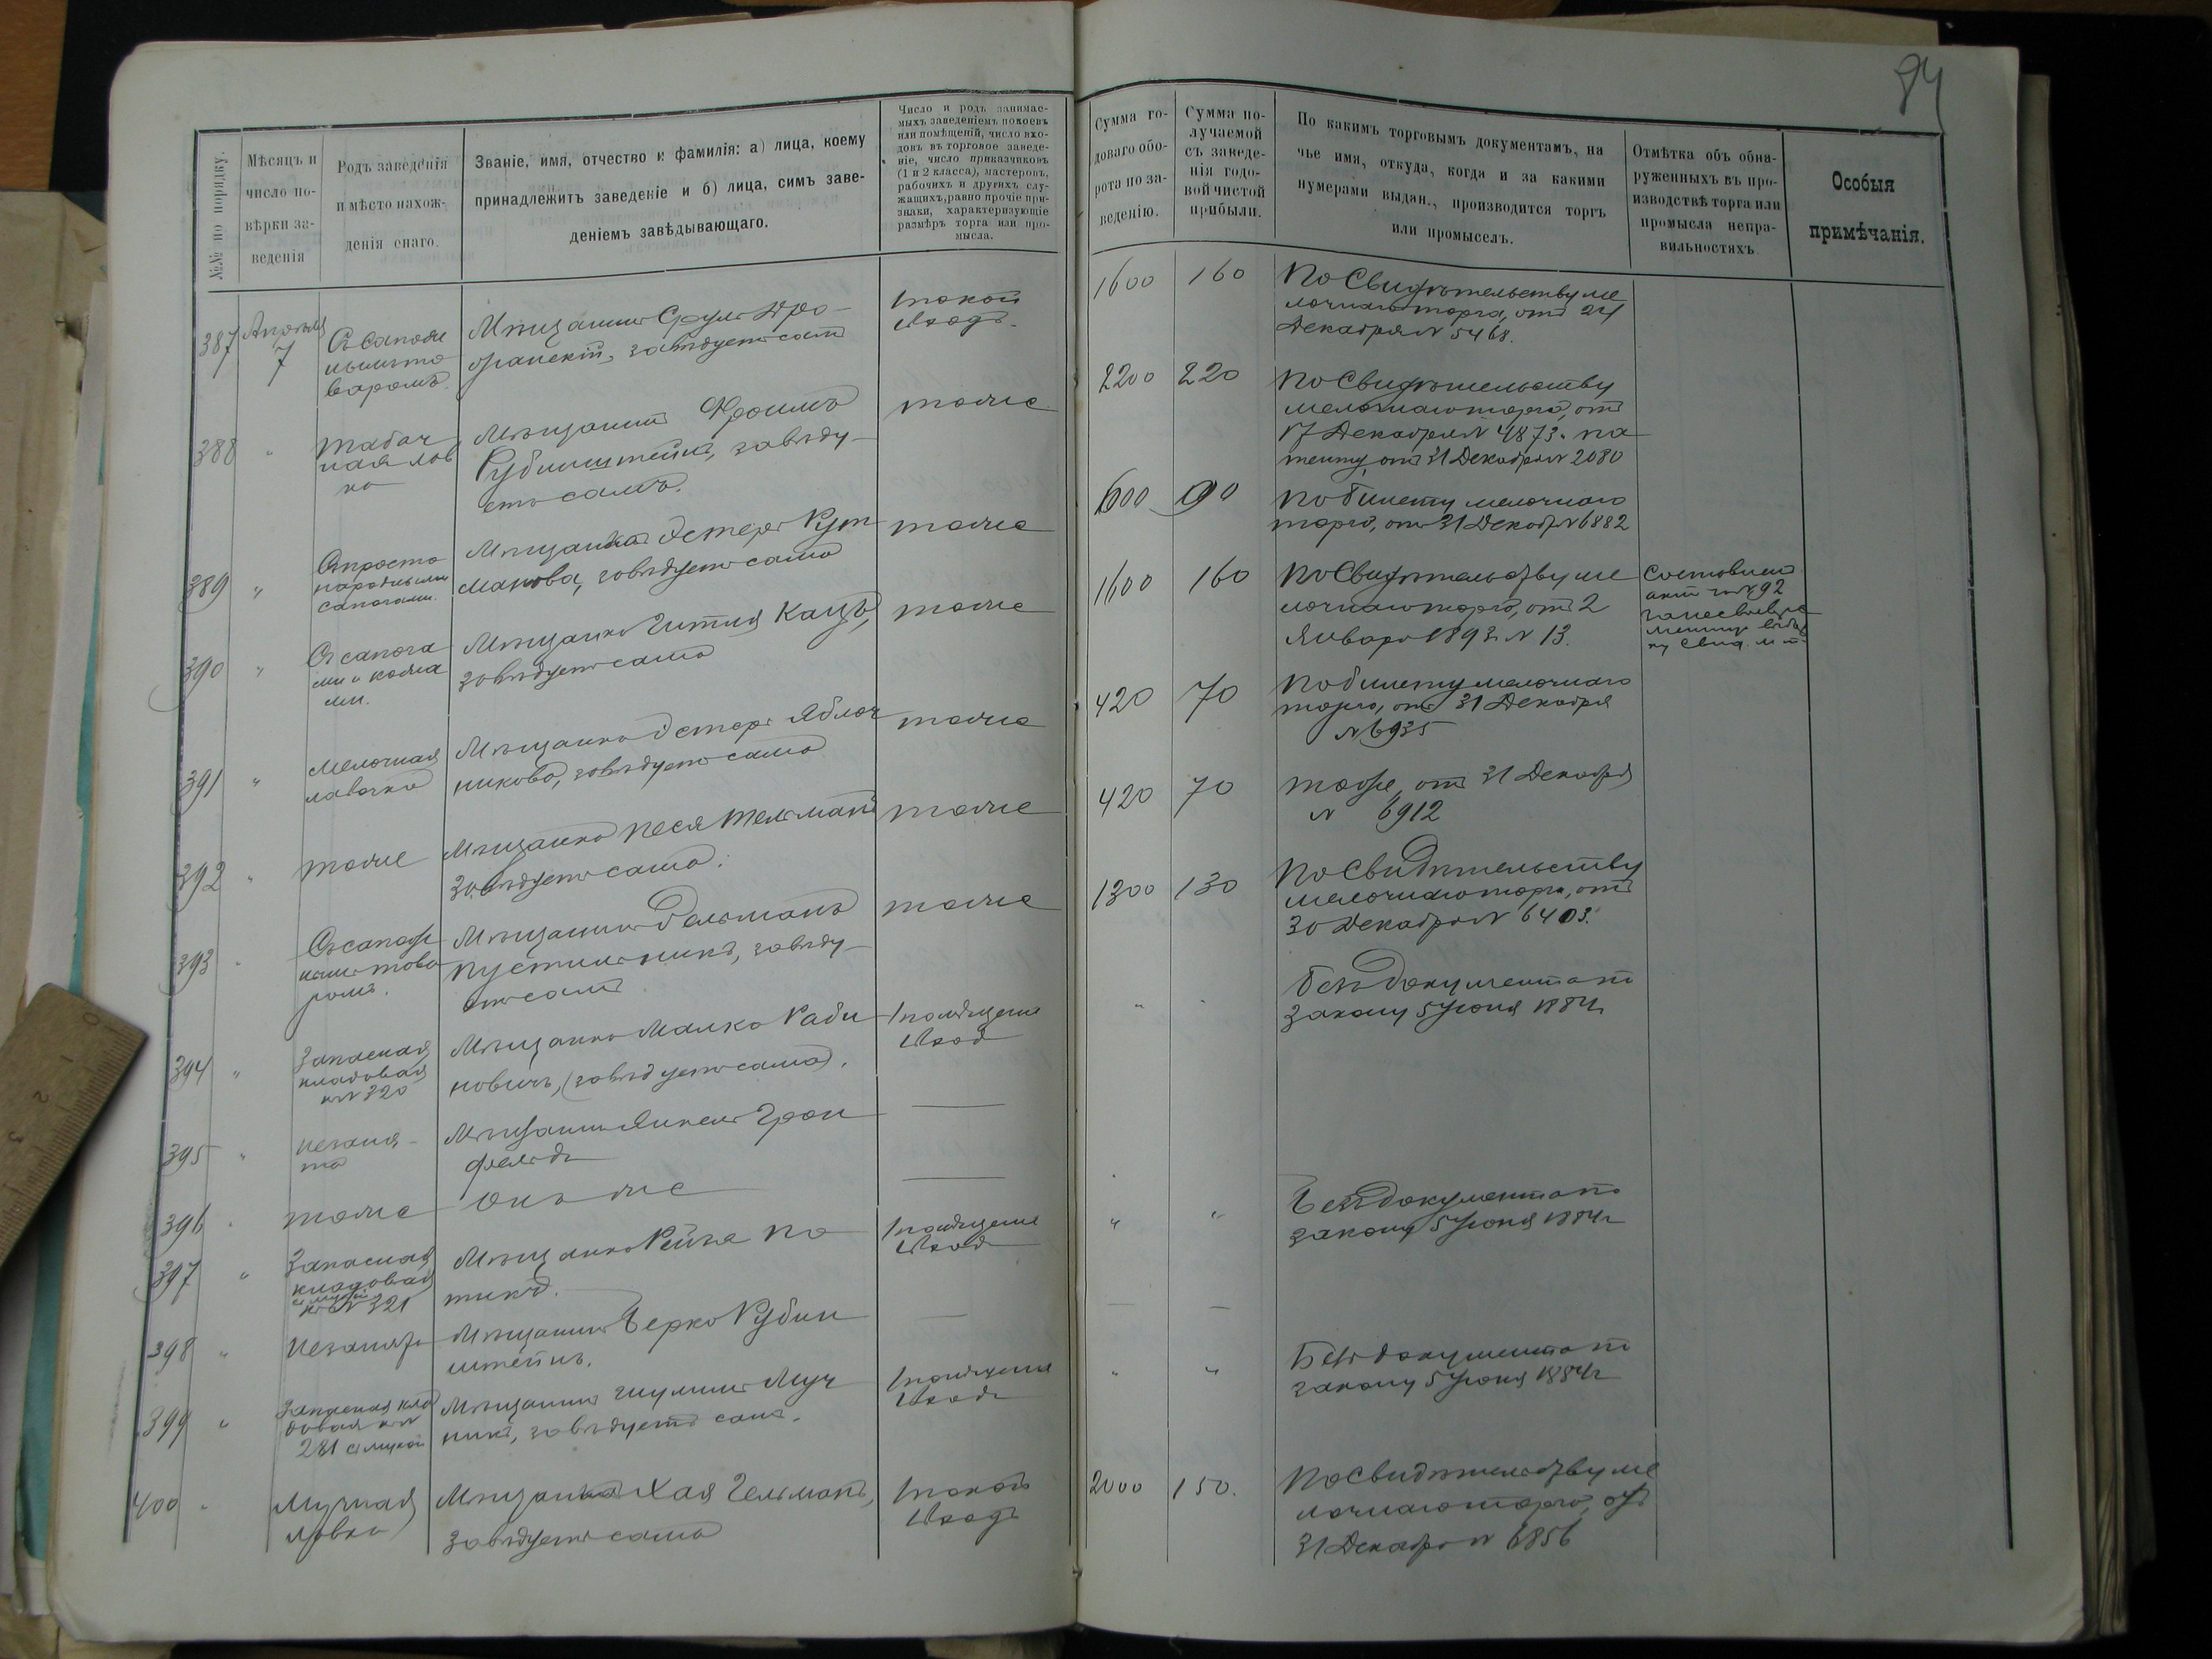 84
№№ по порядку.
Мѣсяцъ и
число по-
вѣрки за-
веденія
Родъ заведенія
и мѣсто нахож-
денія онаго.
Званіе, имя, отчество и фамилія: а) лица, коему
принадлежитъ заведеніе и б) лица, симъ заве-
деніемъ завѣдывающаго.
Число и родъ занимае-
мыхъ заведеніемъ покоевъ
или помѣщеній, число вхо-
довъ въ торговое заведе-
ніе, число приказчиковъ
(1 и 2 класса), мастеровъ,
рабочихъ и другихъ слу-
жащихъ, равно прочіе при-
знаки, характеризующіе
размѣръ торга или про-
мысла.
Сумма го-
доваго обо-
рота по за-
веденію.
Сумма по-
лучаемой
съ заведе-
нія годо-
вой чистой
прибыли.
По какимъ торговымъ документамъ, на
чье имя, откуда, когда и за какими
нумерами выдан., производится торгъ
или промыселъ.
Отмѣтка объ обна-
руженныхъ въ про-
изводствѣ торга или
промысла непра-
вильностяхъ
Особыя
примѣчанія.
387
Апрѣля
7
Съ сапож
нымъ то
варомъ.
Мѣщанинъ Сруль
завѣдуетъ самъ
1 покой
1 входъ.
1600
160
По Свидѣтельству ме
лочнаго торга, отъ 24
Декабря № 5468.
388
"
Табач
ная лав
ка
Мѣщанинъ Фроимъ
Рубинштейнъ, завѣду-
етъ самъ.
тоже
2200
220
По Свидѣтельству
мелочнаго торга, отъ
17 Декабря № 4873. па
тенту отъ 31 Декабря № 2080
389
"
Съ просто
народными
сапогами.
Мѣщанка Эстеръ Рут
манова, завѣдуетъ сама
тоже
600
90
По билету мелочнаго
торга, отъ 31 Декабр № 6882
390
"
Съ сапога
ми и кожа
ми.
Мѣщанка Гитля Кацъ,
завѣдуетъ сама
тоже
1600
160
По Свидѣтельству ме
лочнаго торга, отъ 2
Января 1893 г. № 13.
Составленъ
актъ за № 92
за несвоевре
менную выбор
ку свид. м. т.
391
"
Мелочная
лавочка
Мѣщанка Эстеръ Яблоч
никова, завѣдуетъ сама
тоже
420
70
По билету мелочнаго
торга, отъ 31 Декабря
№ 6935
392
"
тоже
Мѣщанка Песя Тельманъ
завѣдуетъ сама.
тоже
420
70
тоже, отъ 31 Декабря
№ 6912
393
"
Съ сапож
нымъ това
ромъ.
Мѣщанинъ
Пустильникъ, завѣду-
етъ самъ
тоже
1300
130
По Свидѣтельству
мелочнаго торга, отъ
30 Декабря № 6403.
394
"
Запасная
кладовая
къ № 320
Мѣщанка Малка Раби
новичъ, (завѣдуетъ сама).
1 помѣщеніе
1 входъ
"
"
Безъ документа по
закону 5 Іюня 1884 г.
395
"
незаня-
та
Мѣщанинъ Янкель Грин
фельдъ
—
396
"
тоже
Онъ же
—
397
"
Запасная
кладовая
съ мукой
къ № 321
Мѣщанка Рейза По
тикъ.
1 помѣщеніе
1 входъ
"
"
Безъ документа по
закону 5 Іюня 1884 г.
398
"
Незанята
Мѣщанинъ Берко Рубин
штейнъ.
—
—
—
399
"
Запасная кла
довая къ №
281 съ мукой
Мѣщанинъ Шулимъ Муч
никъ, завѣдуетъ самъ.
1 помѣщеніе
1 входъ
"
"
Безъ документа по
закону 5 Іюня 1884 г.
400
"
Мучная
лавка
Мѣщанка Хая Гельманъ,
завѣдуетъ сама
1 покой
1 входъ
2000
150.
По Свидѣтельству ме
лочнаго торга, отъ
31 Декабря № 6856